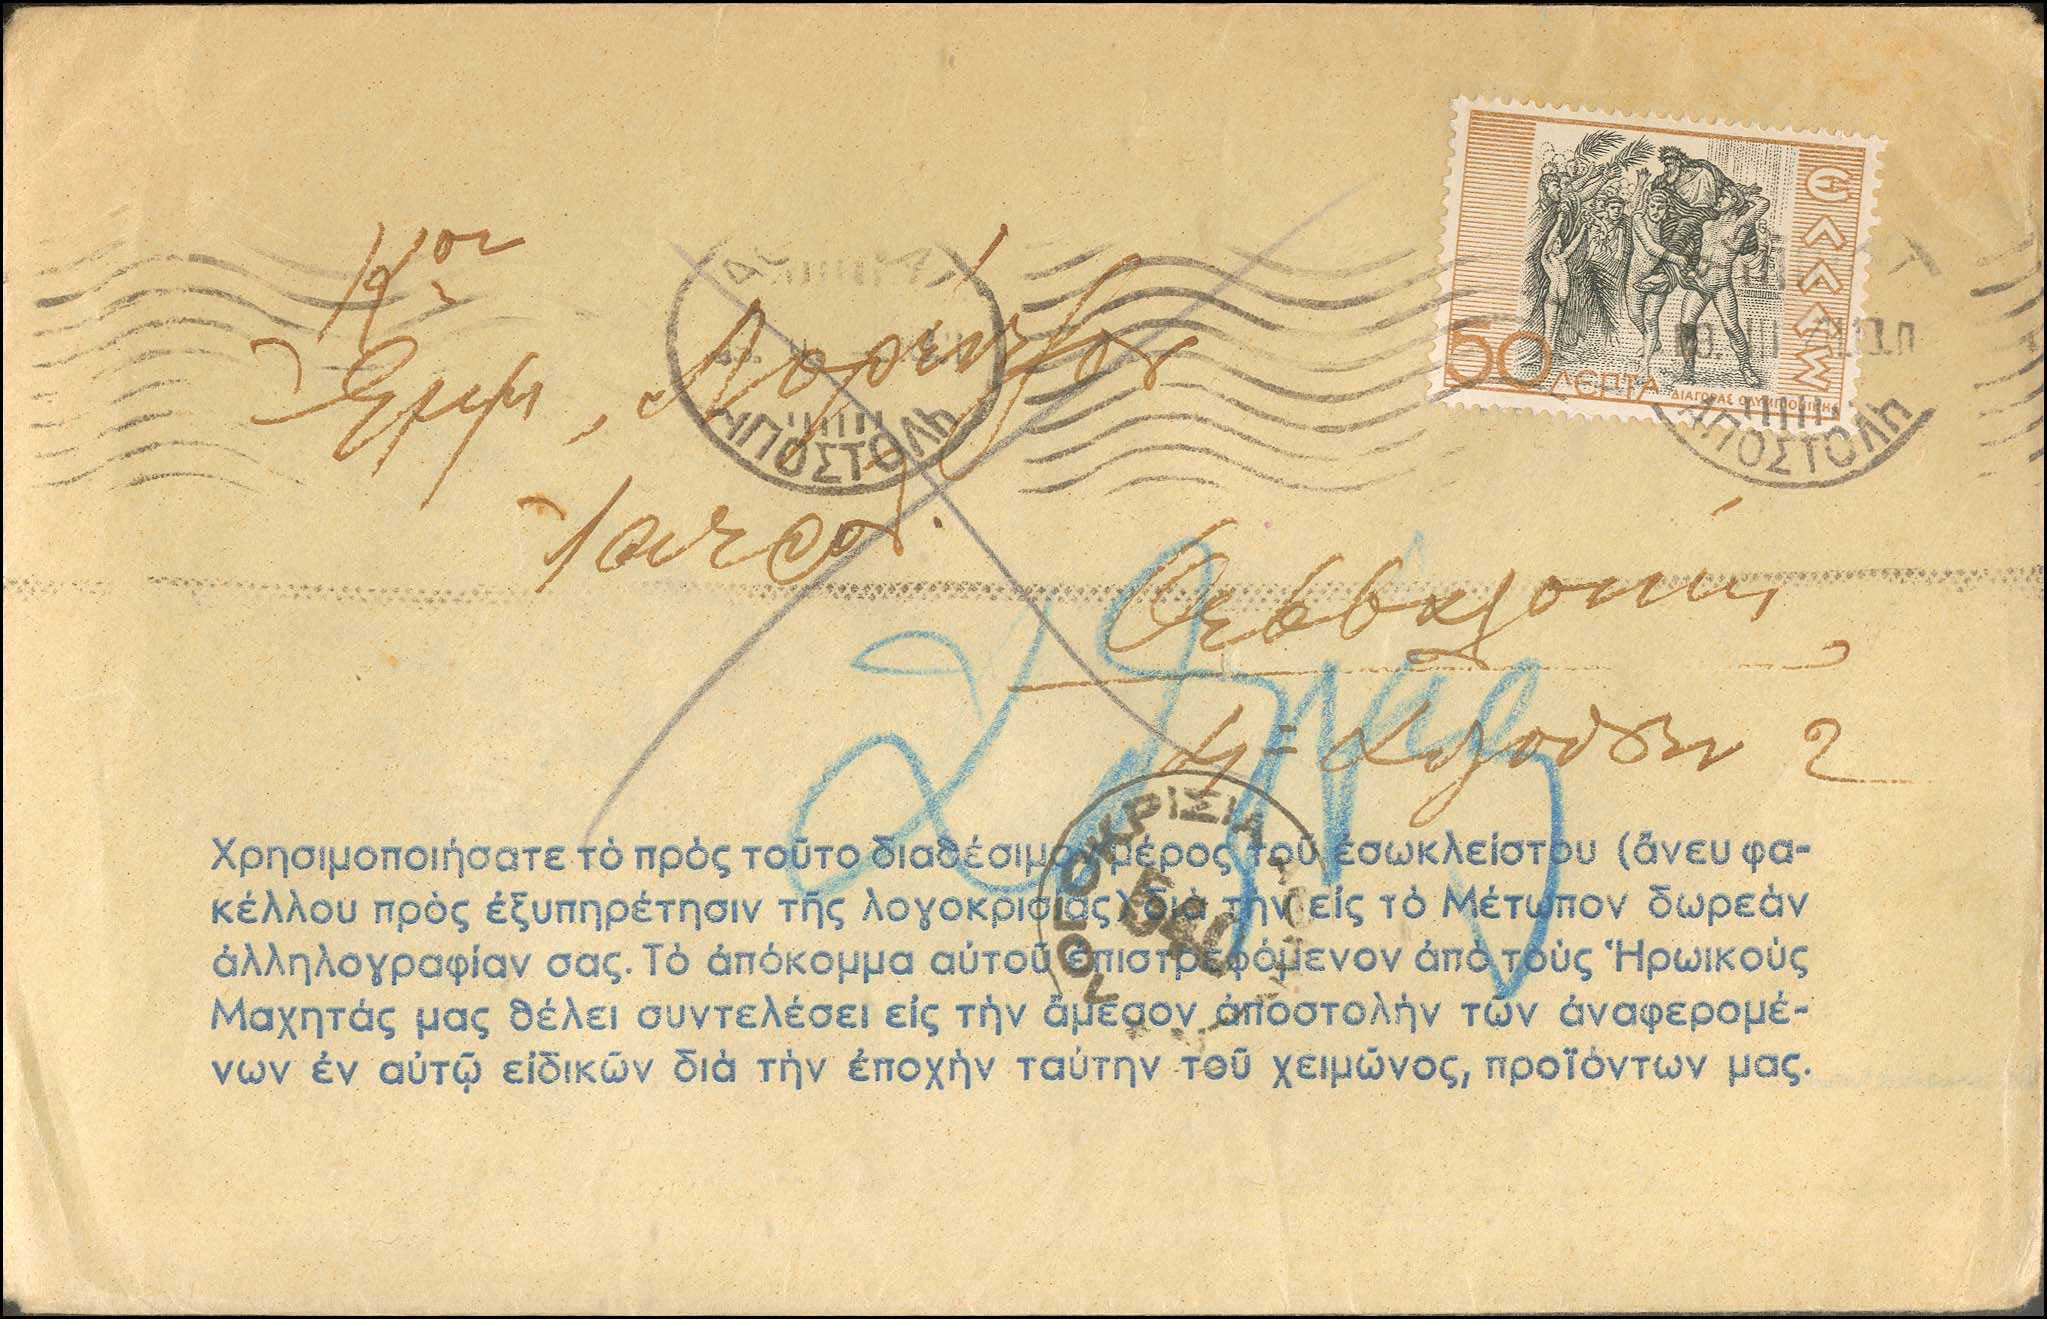 ΕΛΛΑΣ
50 ΛΕΠΤΑ
ΔΙΑΓΟΡΑΣ ΟΛΥΜΠΙΟΝΙΚΗΣ
ΑΠΟΣΤΟΛΗ
ΑΠΟΣΤΟΛΗ
Ἐμμ. Λορέντζον
Ἰατρον
Θεσσαλονίκη
2
ΛΟΓΟΚΡΙΣΙΑ
Χρησιμοποιήσατε τὸ πρὸς τοῦτο διαθέσιμον μέρος τοῦ ἐσωκλείστου (ἄνευ φα-
κέλλου πρὸς ἐξυπηρέτησιν τῆς λογοκρισίας) διὰ τὴν εἰς τὸ Μέτωπον δωρεὰν
ἀλληλογραφίαν σας. Τὸ ἀπόκομμα αὐτοῦ ἐπιστρεφόμενον ἀπὸ τοὺς Ἡρωικοὺς
Μαχητάς μας θέλει συντελέσει εἰς τὴν ἄμεσον ἀποστολὴν τῶν ἀναφερομέ-
νων ἐν αὐτῷ εἰδικῶν διὰ τὴν ἐποχὴν ταύτην τοῦ χειμῶνος, προϊόντων μας.